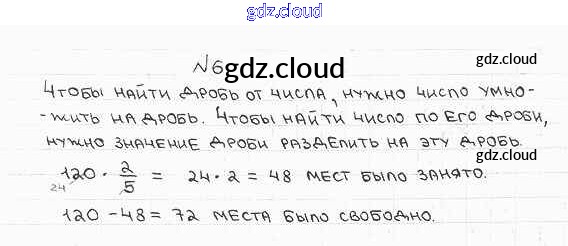 gdz.cloud
№6
gdz.cloud
Чтобы найти дробь от числа, нужно число умно-
-жить на дробь. Чтобы найти число по его дроби,
нужно значение дроби разделить на эту дробь.
gdz.cloud
120 · 2/5 = 24 · 2 = 48 мест было занято.
24
gdz.cloud
120 - 48 = 72 места было свободно.
gdz.cloud